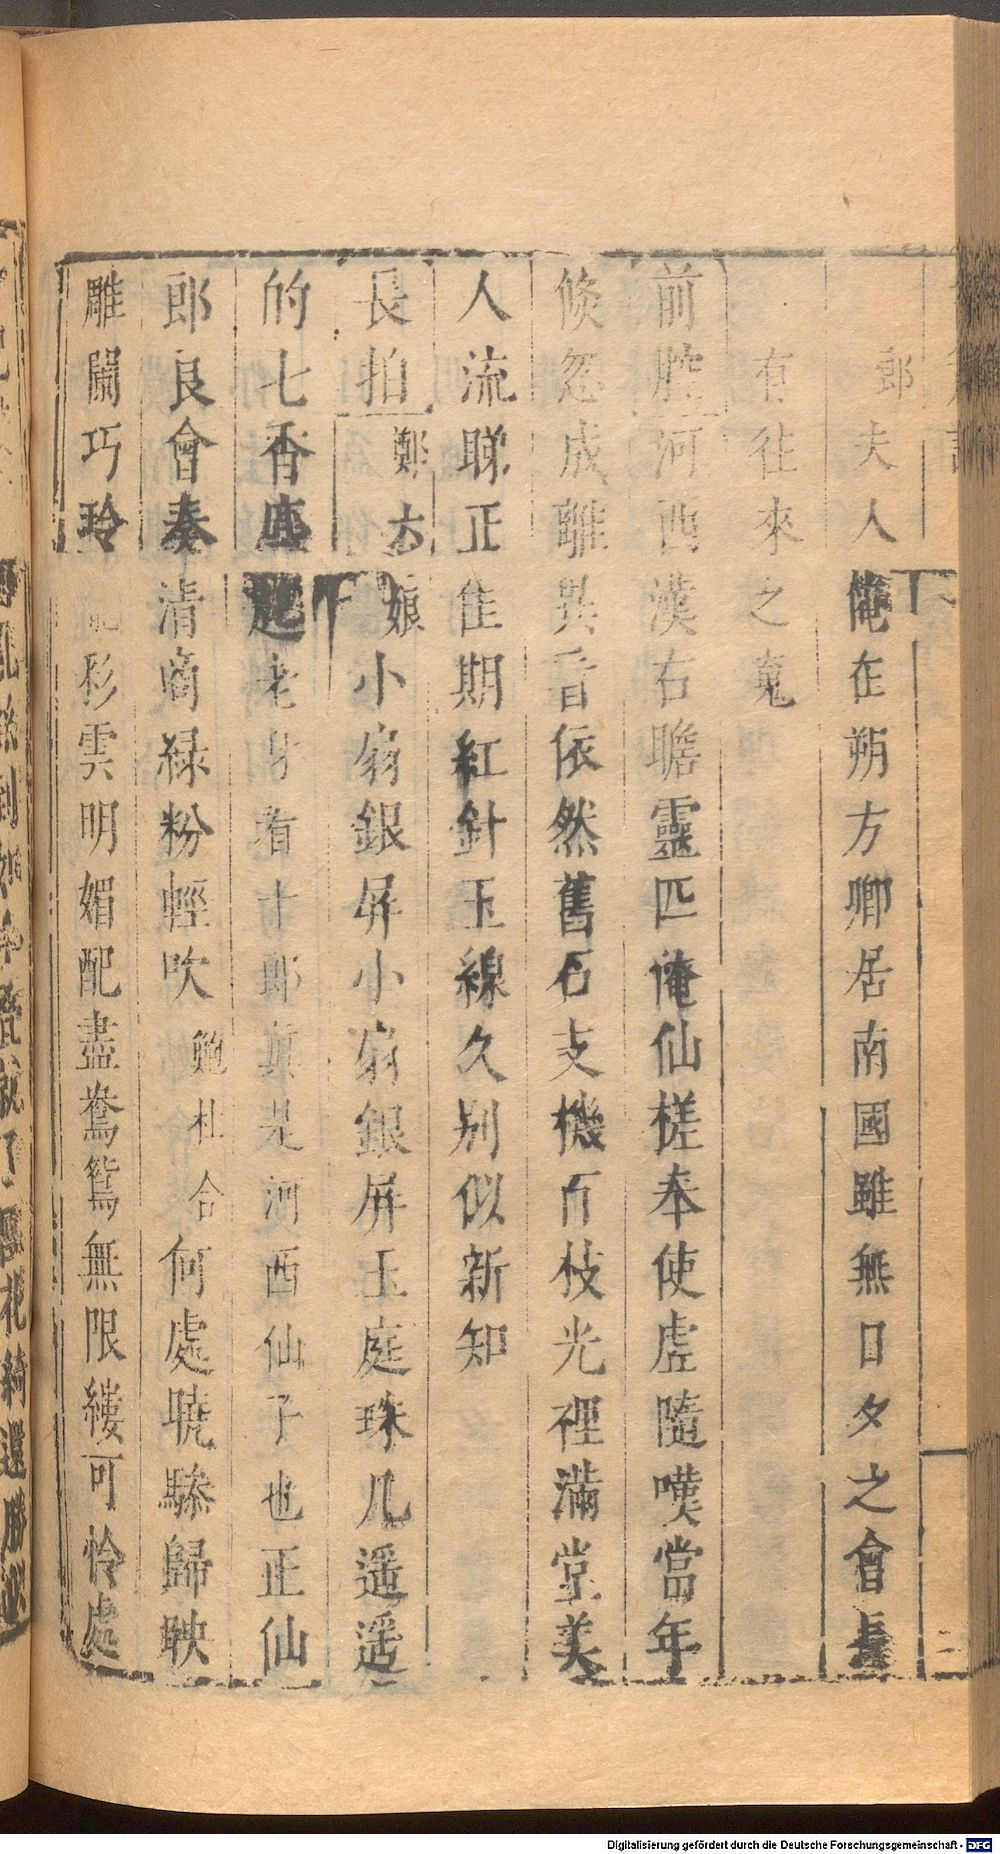 郎夫人俺在朔方卿居南國雖無日夕之會長
有往來之䰟
前腔河西漢右瞻靈匹俺仙槎奉使虛隨嘆當年
倐忽成離異昔依然舊石支機百枝光裡滿堂美
人流睇正佳期紅針玉線久别似新知
長拍鄭六娘小扇銀屏小扇銀屏玉庭珠几遥遥
的七香車起老身看十郎真是河西仙子也正仙
郎良會奏清商緑粉輕吹鮑杜合何處曉驂歸映
雕闌巧玲彩雲明媚配盡鴛鴦無限縷可怜處
Digitalisierung gefördert durch die Deutsche Forschungsgemeinschaft - DFG